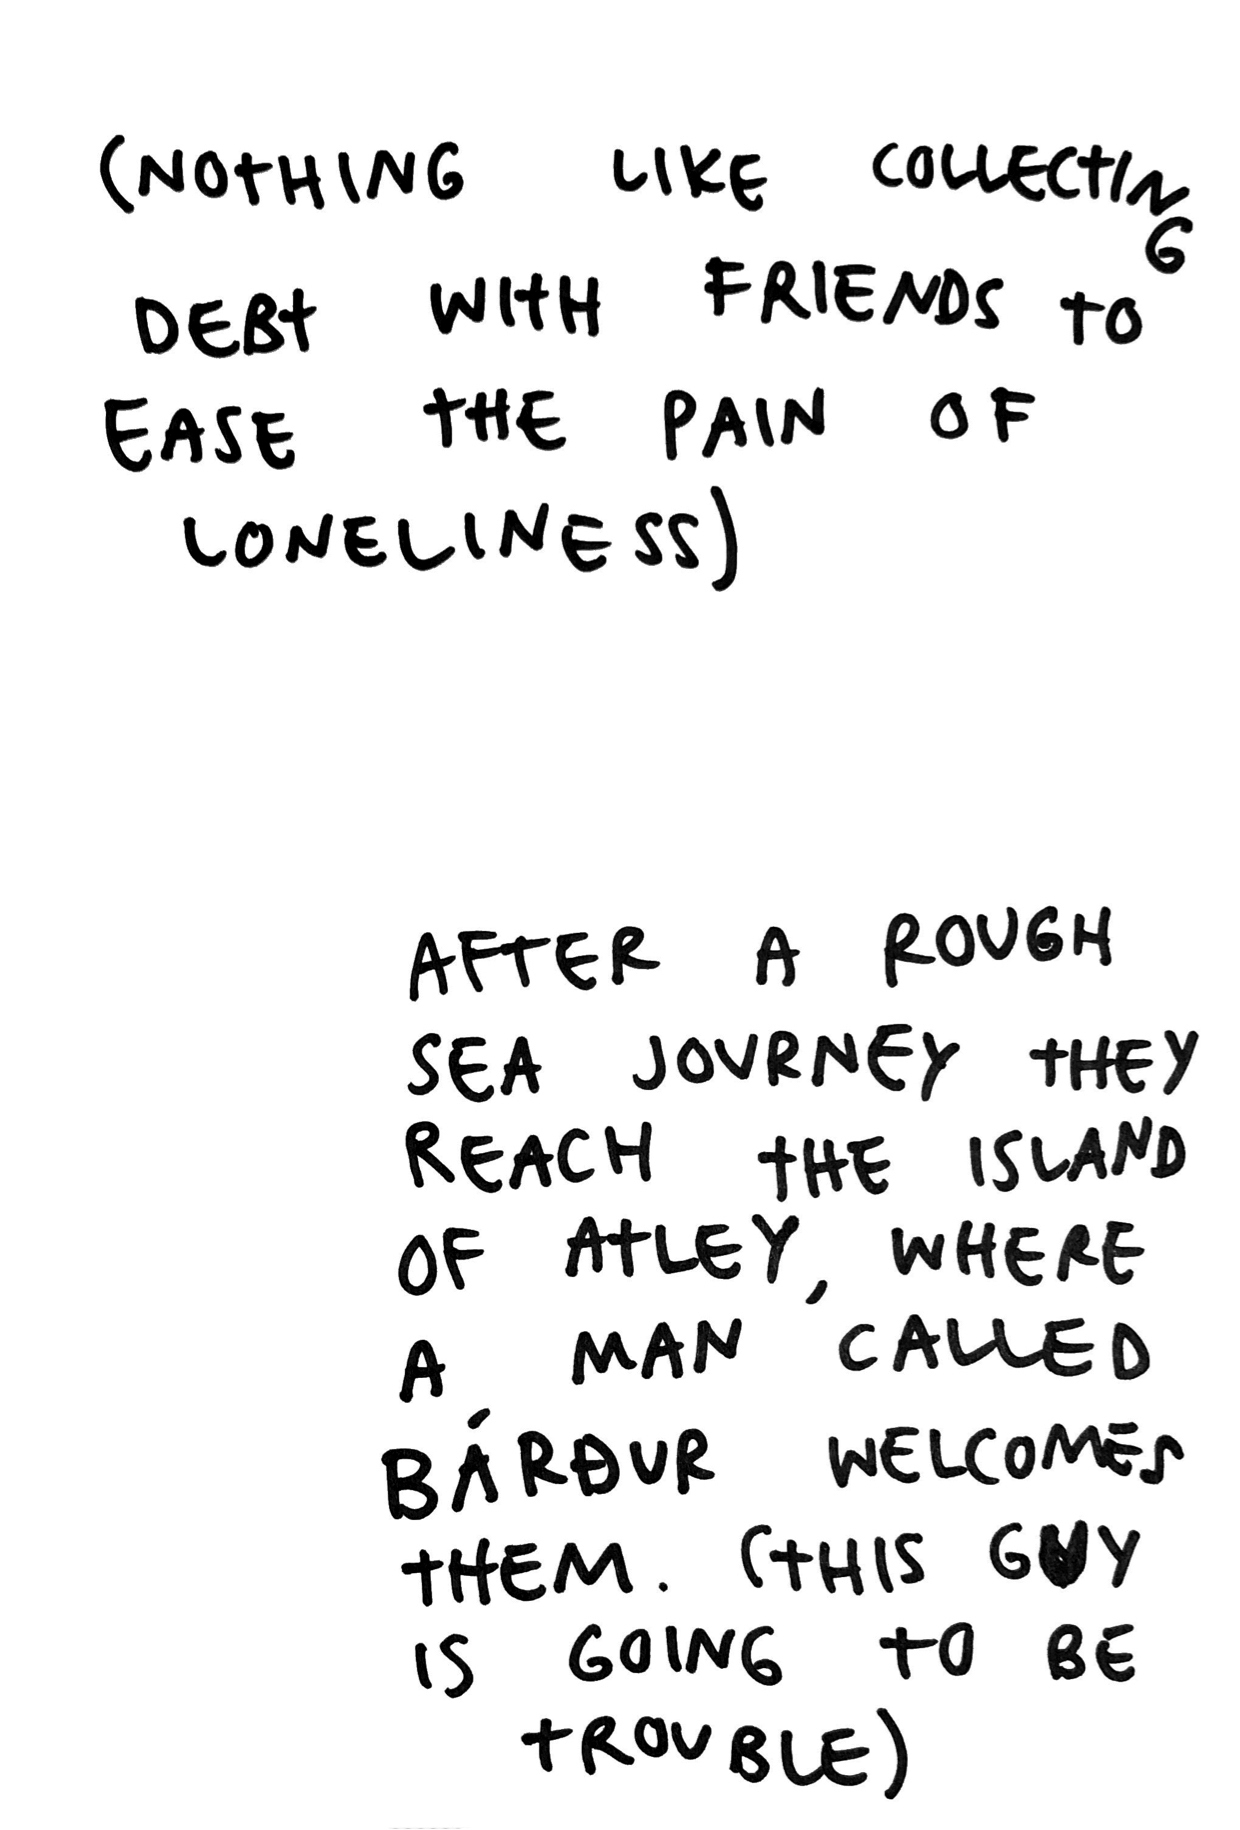 (NOTHING LIKE COLLECTING
DEBT WITH FRIENDS TO
EASE THE PAIN OF
LONELINESS)
AFTER A ROUGH
SEA JOURNEY THEY
REACH THE ISLAND
OF ATLEY, WHERE
A MAN CALLED
BÁRÐUR WELCOMES
THEM. (THIS GUY
IS GOING TO BE
TROUBLE)